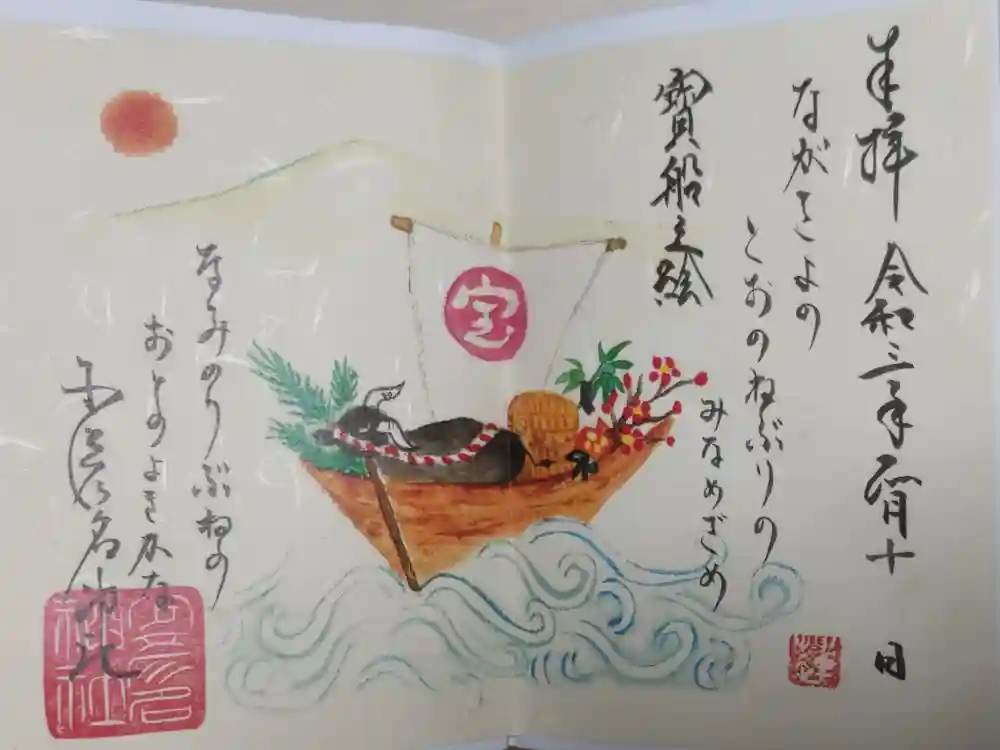 奉拝 令和三年 月十 日
ながきよの
とおのねぶりの
みなめざめ
寶船之絵
宝
なみのりぶねの
おとのよきかな
少彦名神社